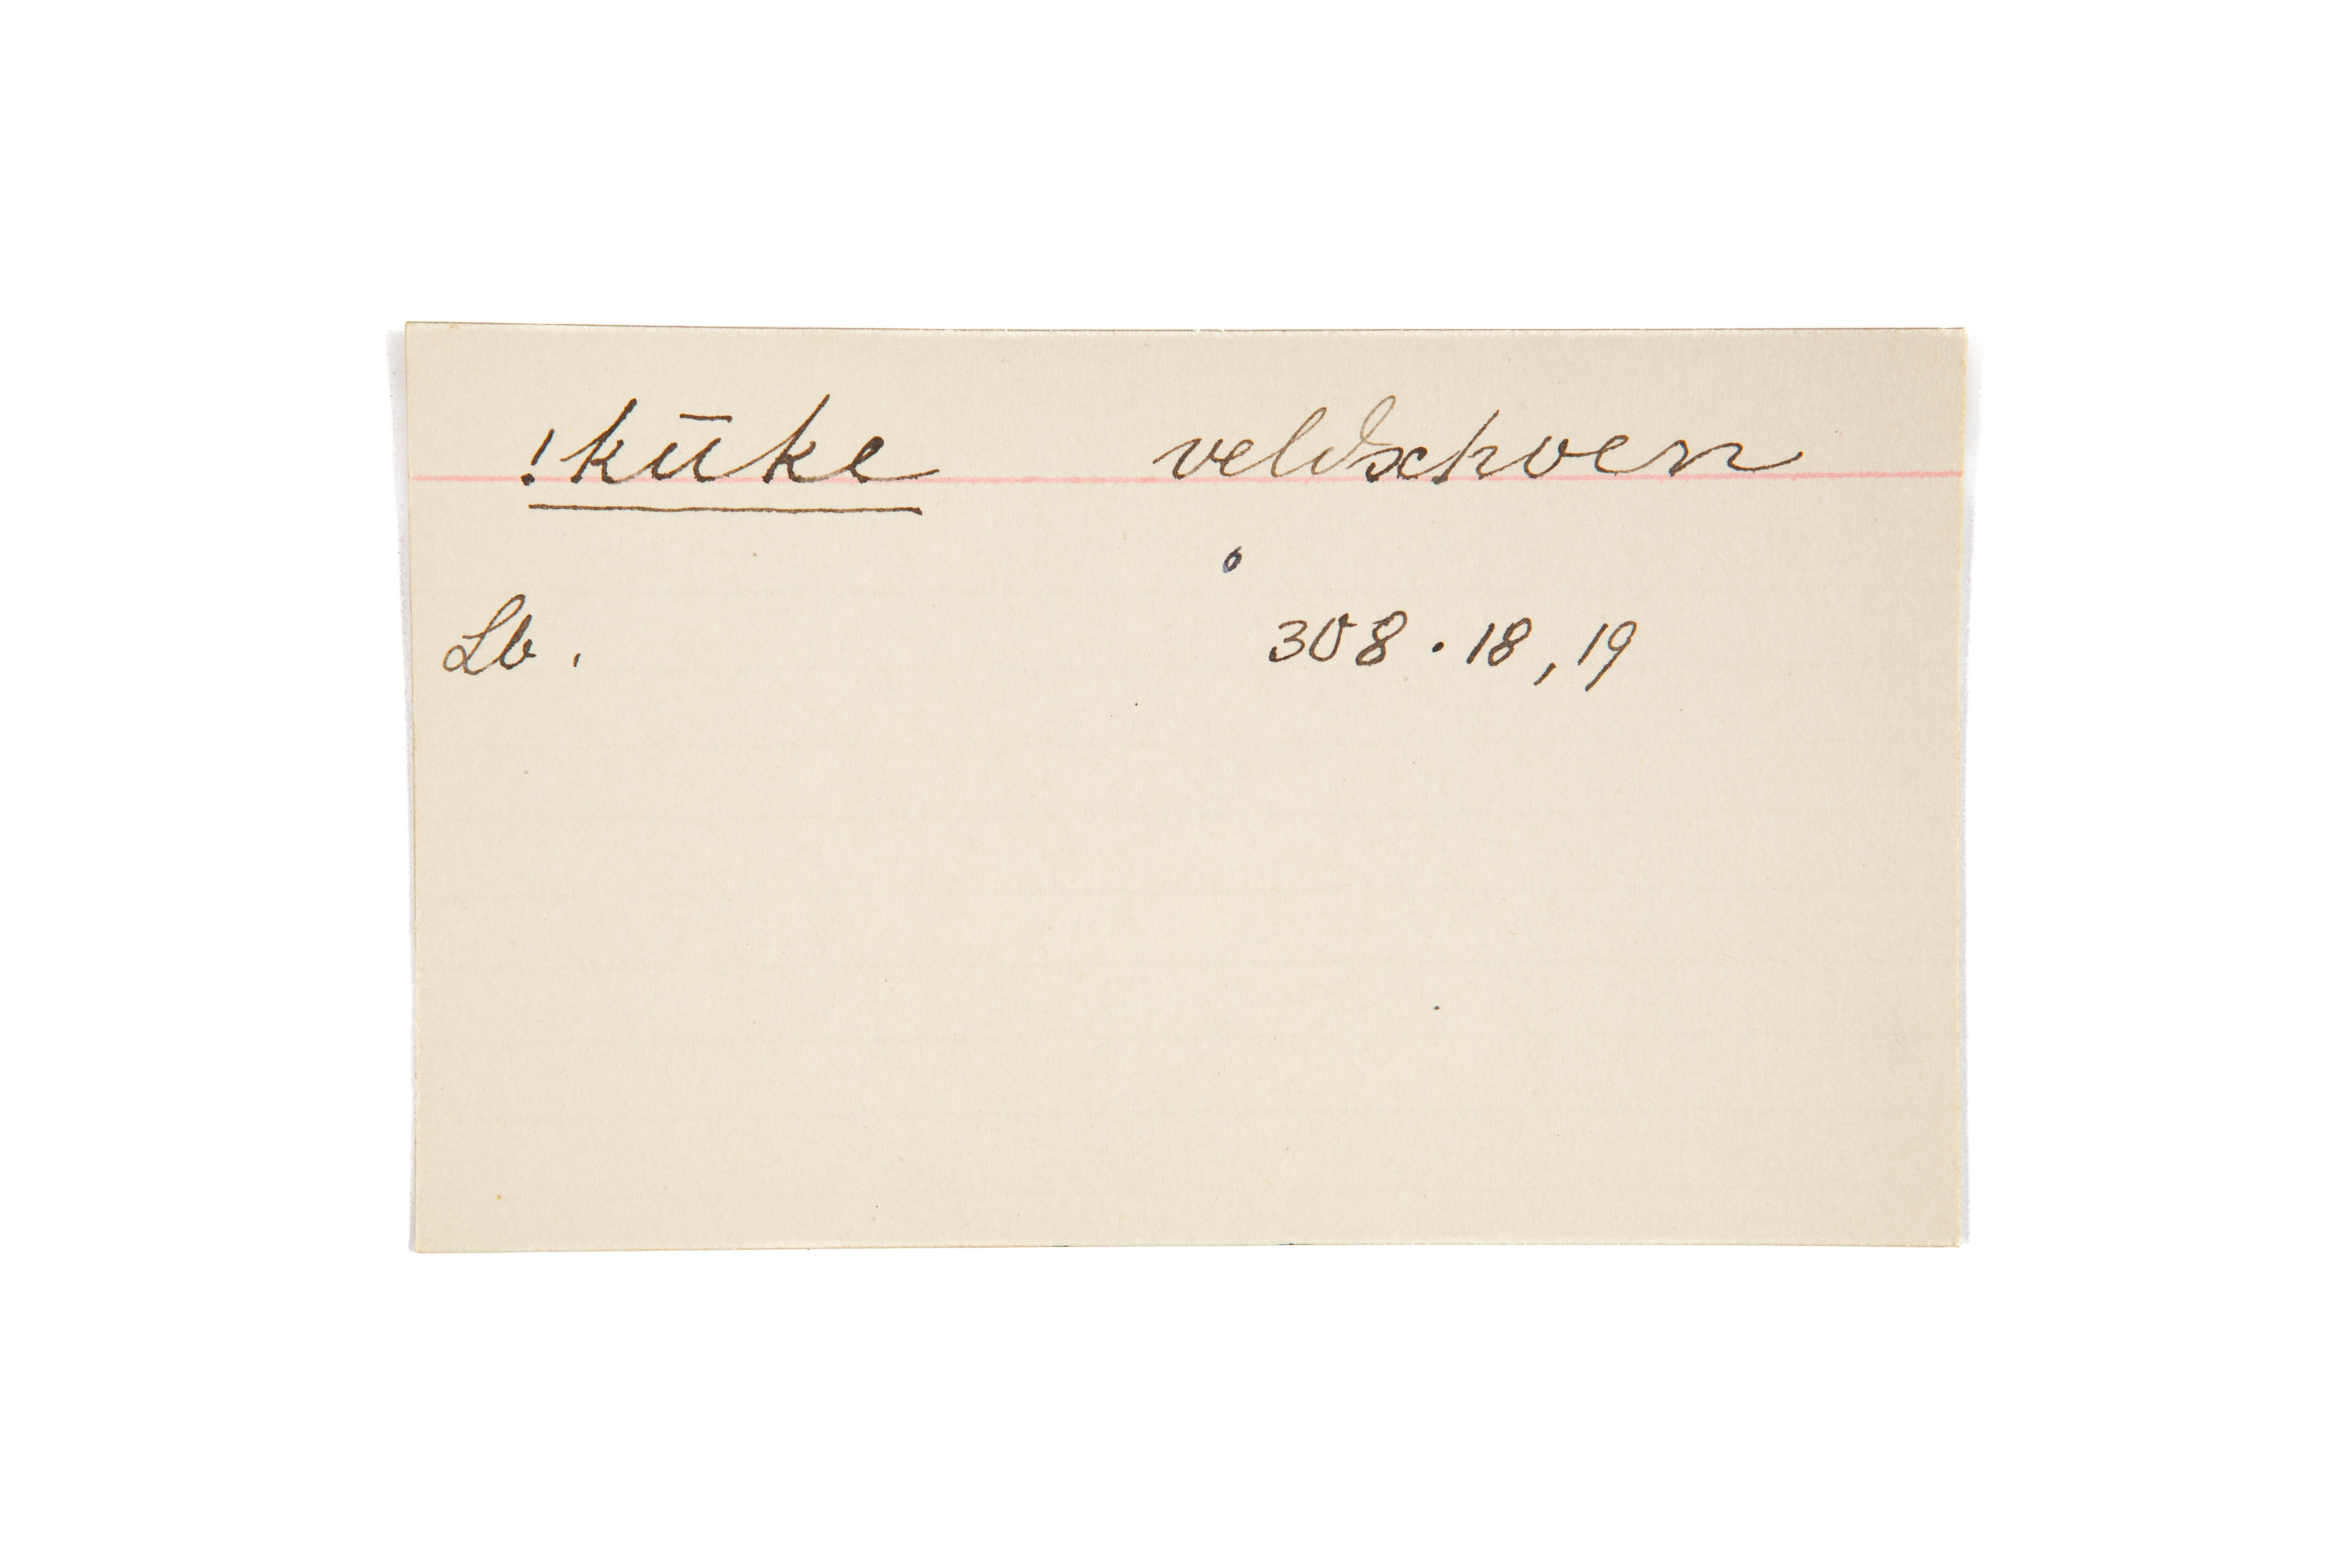 !kūke veldschoen
Lb. 308.18,19